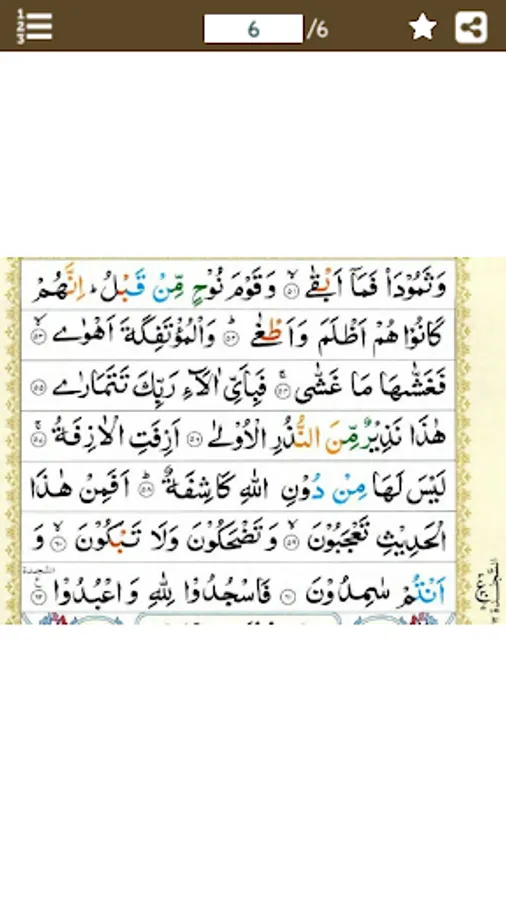 1
2
3
6 /6
وَثَمُوْدَا۟ فَمَاۤ اَبْقٰى ۙ۝۵۱ وَقَوْمَ نُوْحٍ مِّنْ قَبْلُ ؕ اِنَّهُمْ
كَانُوْا هُمْ اَظْلَمَ وَاَطْغٰى ؕ۝۵۲ وَالْمُؤْتَفِكَةَ اَهْوٰى ۙ۝۵۳
فَغَشّٰىهَا مَا غَشّٰى ۚ۝۵۴ فَبِاَيِّ اٰلَآءِ رَبِّكَ تَتَمَارٰى ۝۵۵
هٰذَا نَذِيْرٌ مِّنَ النُّذُرِ الْاُوْلٰى ۝۵۶ اَزِفَتِ الْاٰزِفَةُ ۚ۝۵۷
لَيْسَ لَهَا مِنْ دُوْنِ اللّٰهِ كَاشِفَةٌ ؕ۝۵۸ اَفَمِنْ هٰذَا
الْحَدِيْثِ تَعْجَبُوْنَ ۙ۝۵۹ وَتَضْحَكُوْنَ وَلَا تَبْكُوْنَ ۙ۝۶۰ وَ
اَنْتُمْ سٰمِدُوْنَ ۝۶۱ فَاسْجُدُوْا لِلّٰهِ وَاعْبُدُوْا ۝۶۲
السّجدة
السَّجْدَة